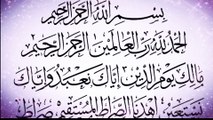 بِسْمِ اللَّهِ الرَّحْمَٰنِ الرَّحِيمِ
الْحَمْدُ لِلَّهِ رَبِّ الْعَالَمِينَ الرَّحْمَٰنِ الرَّحِيمِ
مَالِكِ يَوْمِ الدِّينِ إِيَّاكَ نَعْبُدُ وَإِيَّاكَ
نَسْتَعِينُ اهْدِنَا الصِّرَاطَ الْمُسْتَقِيمَ صِرَاطَ